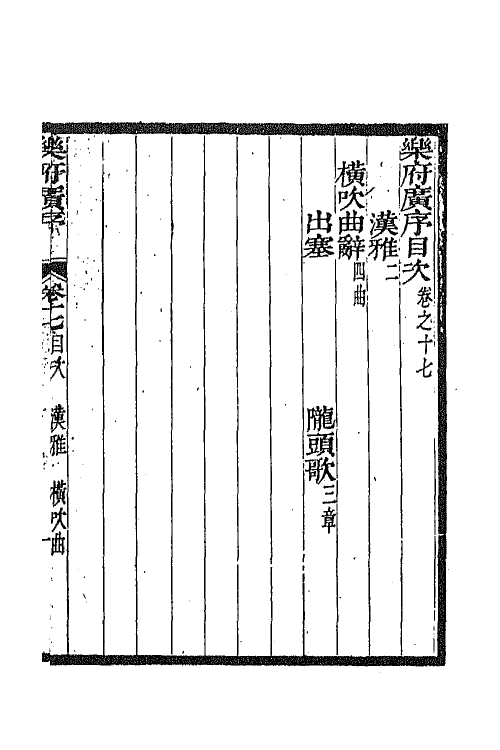 樂府廣序目次 卷之十七
漢雅二
橫吹曲辭 四曲
出塞 隴頭歌 三章
樂府廣序 卷十七目次 漢雅 橫吹曲 一